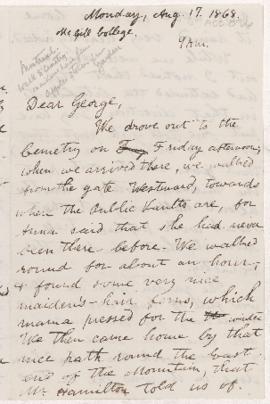 Monday, Aug. 17. 1868.
McGill College.
9 A.M.
Montreal
Dear George,
We drove out to the
Cemetry on Friday afternoon,
when we arrived there, we walked
from the gate Westward, towards
where the Public Vaults are, for
Anna said that she had never
been there before. We walked
round for about an hour,
& found some very nice
maiden's-hair ferns, which
mama pressed for the winter
We then came home by that
nice path round the east
end of the Mountain, that
Mr. Hamilton told us of.